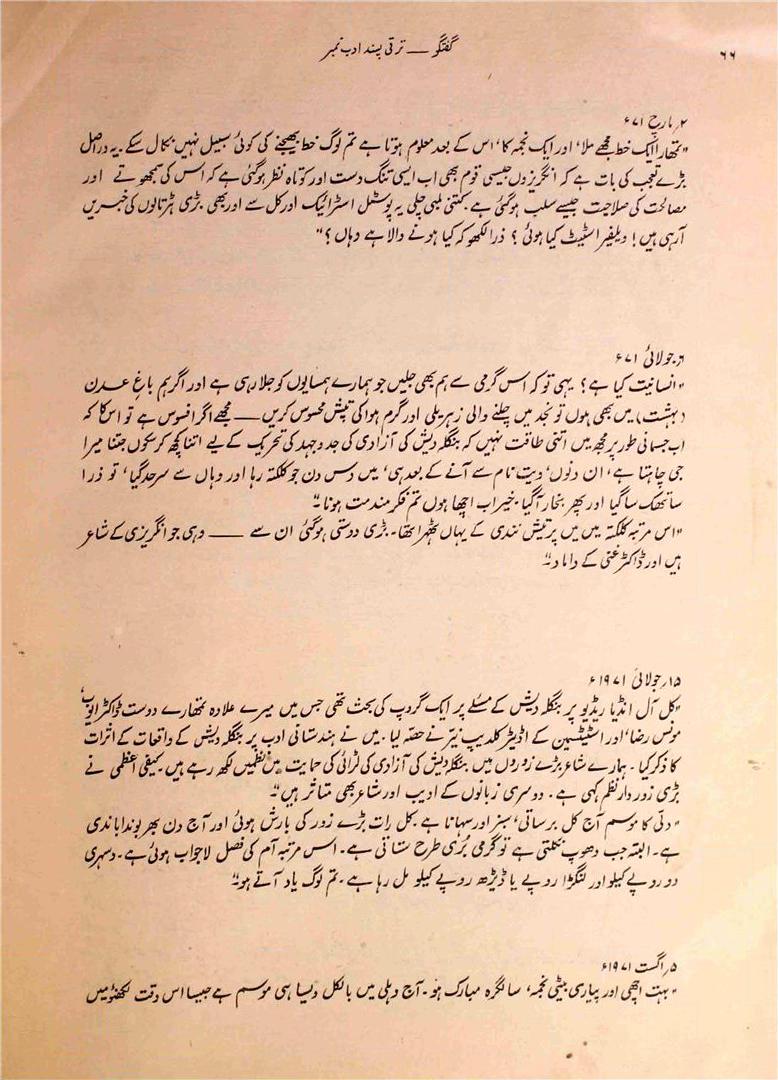 ۶۶
گفتگو — ترقی پسند ادب نمبر
۲؍ مارچ ۷۱ء
"تمہارا ایک خط مجھے ملا، اور ایک نجمہ کا، اس کے بعد معلوم ہوتا ہے تم لوگ خط بھیجنے کی کوئی سبیل نہیں نکال سکے۔ یہ دراصل
بڑے تعجب کی بات ہے کہ انگریزوں جیسی قوم بھی اب ایسی تنگ دست اور کوتاہ نظر ہو گئی ہے کہ اس کی سمجھوتے اور
مصالحت کی صلاحیت جیسے سلب ہو گئی ہے۔ کتنی لمبی چلی یہ پوسٹل اسٹرائیک اور کل سے اور بھی بڑی ہڑتالوں کی خبریں
آرہی ہیں! ویلفیر اسٹیٹ کیا ہوئی؟ ذرا لکھو کہ کیا ہونے والا ہے وہاں؟"
جولائی ۷۱ء
"انسانیت کیا ہے؟ یہی تو کہ اس گرمی سے ہم بھی جلیں جو ہمارے ہمسایوں کو جلا رہی ہے اور اگر ہم باغِ عدن
(بہشت) میں بھی ہوں تو نجد میں چلنے والی زہریلی اور گرم ہوا کی تپش محسوس کریں — مجھے اگر افسوس ہے تو اس کا کہ
اب جسمانی طور پر مجھ میں اتنی طاقت نہیں کہ بنگلہ دیش کی آزادی کی جدوجہد کی تحریک کے لیے اتنا کچھ کر سکوں جتنا میرا
جی چاہتا ہے، ان دنوں، ویت نام سے آنے کے بعد ہی، میں دس دن جو کلکتہ رہا اور وہاں سے سرحد گیا، تو ذرا
سا تھک سا گیا اور پھر بخار آ گیا۔ خیر اب اچھا ہوں تم فکر مند مت ہونا۔"
"اس مرتبہ کلکتہ میں میں پرتیش نندی کے یہاں ٹھہرا تھا۔ بڑی دوستی ہو گئی ان سے — وہی جو انگریزی کے شاعر
ہیں اور ڈاکٹر غنی کے داماد۔"
۱۵؍ جولائی ۱۹۷۱ء
"کل آل انڈیا ریڈیو پر بنگلہ دیش کے مسئلے پر ایک گروپ کی بحث تھی جس میں میرے علاوہ تمھارے دوست ڈاکٹر ایوب،
مونس رضا، اور اسٹیٹسمین کے اڈیٹر کلدیپ نیر نے حصّہ لیا۔ میں نے ہندستانی ادب پر بنگلہ دیش کے واقعات کے اثرات
کا ذکر کیا۔ ہمارے شاعر بڑے زوروں میں بنگلہ دیش کی آزادی کی لڑائی کی حمایت میں نظمیں لکھ رہے ہیں۔ کیفی اعظمی نے
بڑی زوردار نظم کہی ہے۔ دوسری زبانوں کے ادیب اور شاعر بھی متاثر ہیں۔"
"دلّی کا موسم آج کل برساتی، سبز اور سہانا ہے۔ کل رات بڑے زور کی بارش ہوئی اور آج دن بھر بوندا باندی
ہے۔ البتہ جب دھوپ نکلتی ہے تو گرمی بُری طرح ستاتی ہے۔ اس مرتبہ آم کی فصل لاجواب ہوئی ہے۔ دسہری
دو روپے کیلو اور لنگڑا روپے یا ڈیڑھ روپے کیلو مل رہا ہے۔ تم لوگ یاد آتے ہو۔"
۵؍ اگست ۱۹۷۱ء
"بہت اچھی اور پیاری بیٹی نجمہ، سالگرہ مبارک ہو۔ آج دہلی میں بالکل ویسا ہی موسم ہے جیسا اس وقت لکھنؤ میں